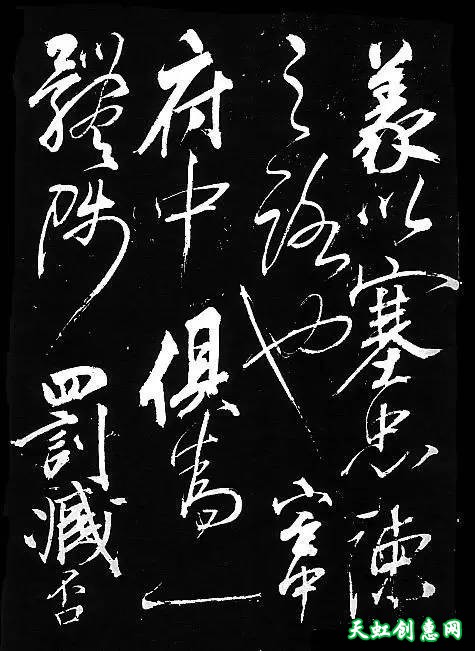 義以塞忠諫
之路也宮中
府中俱為一
體陟罰臧否
天虹创惠网